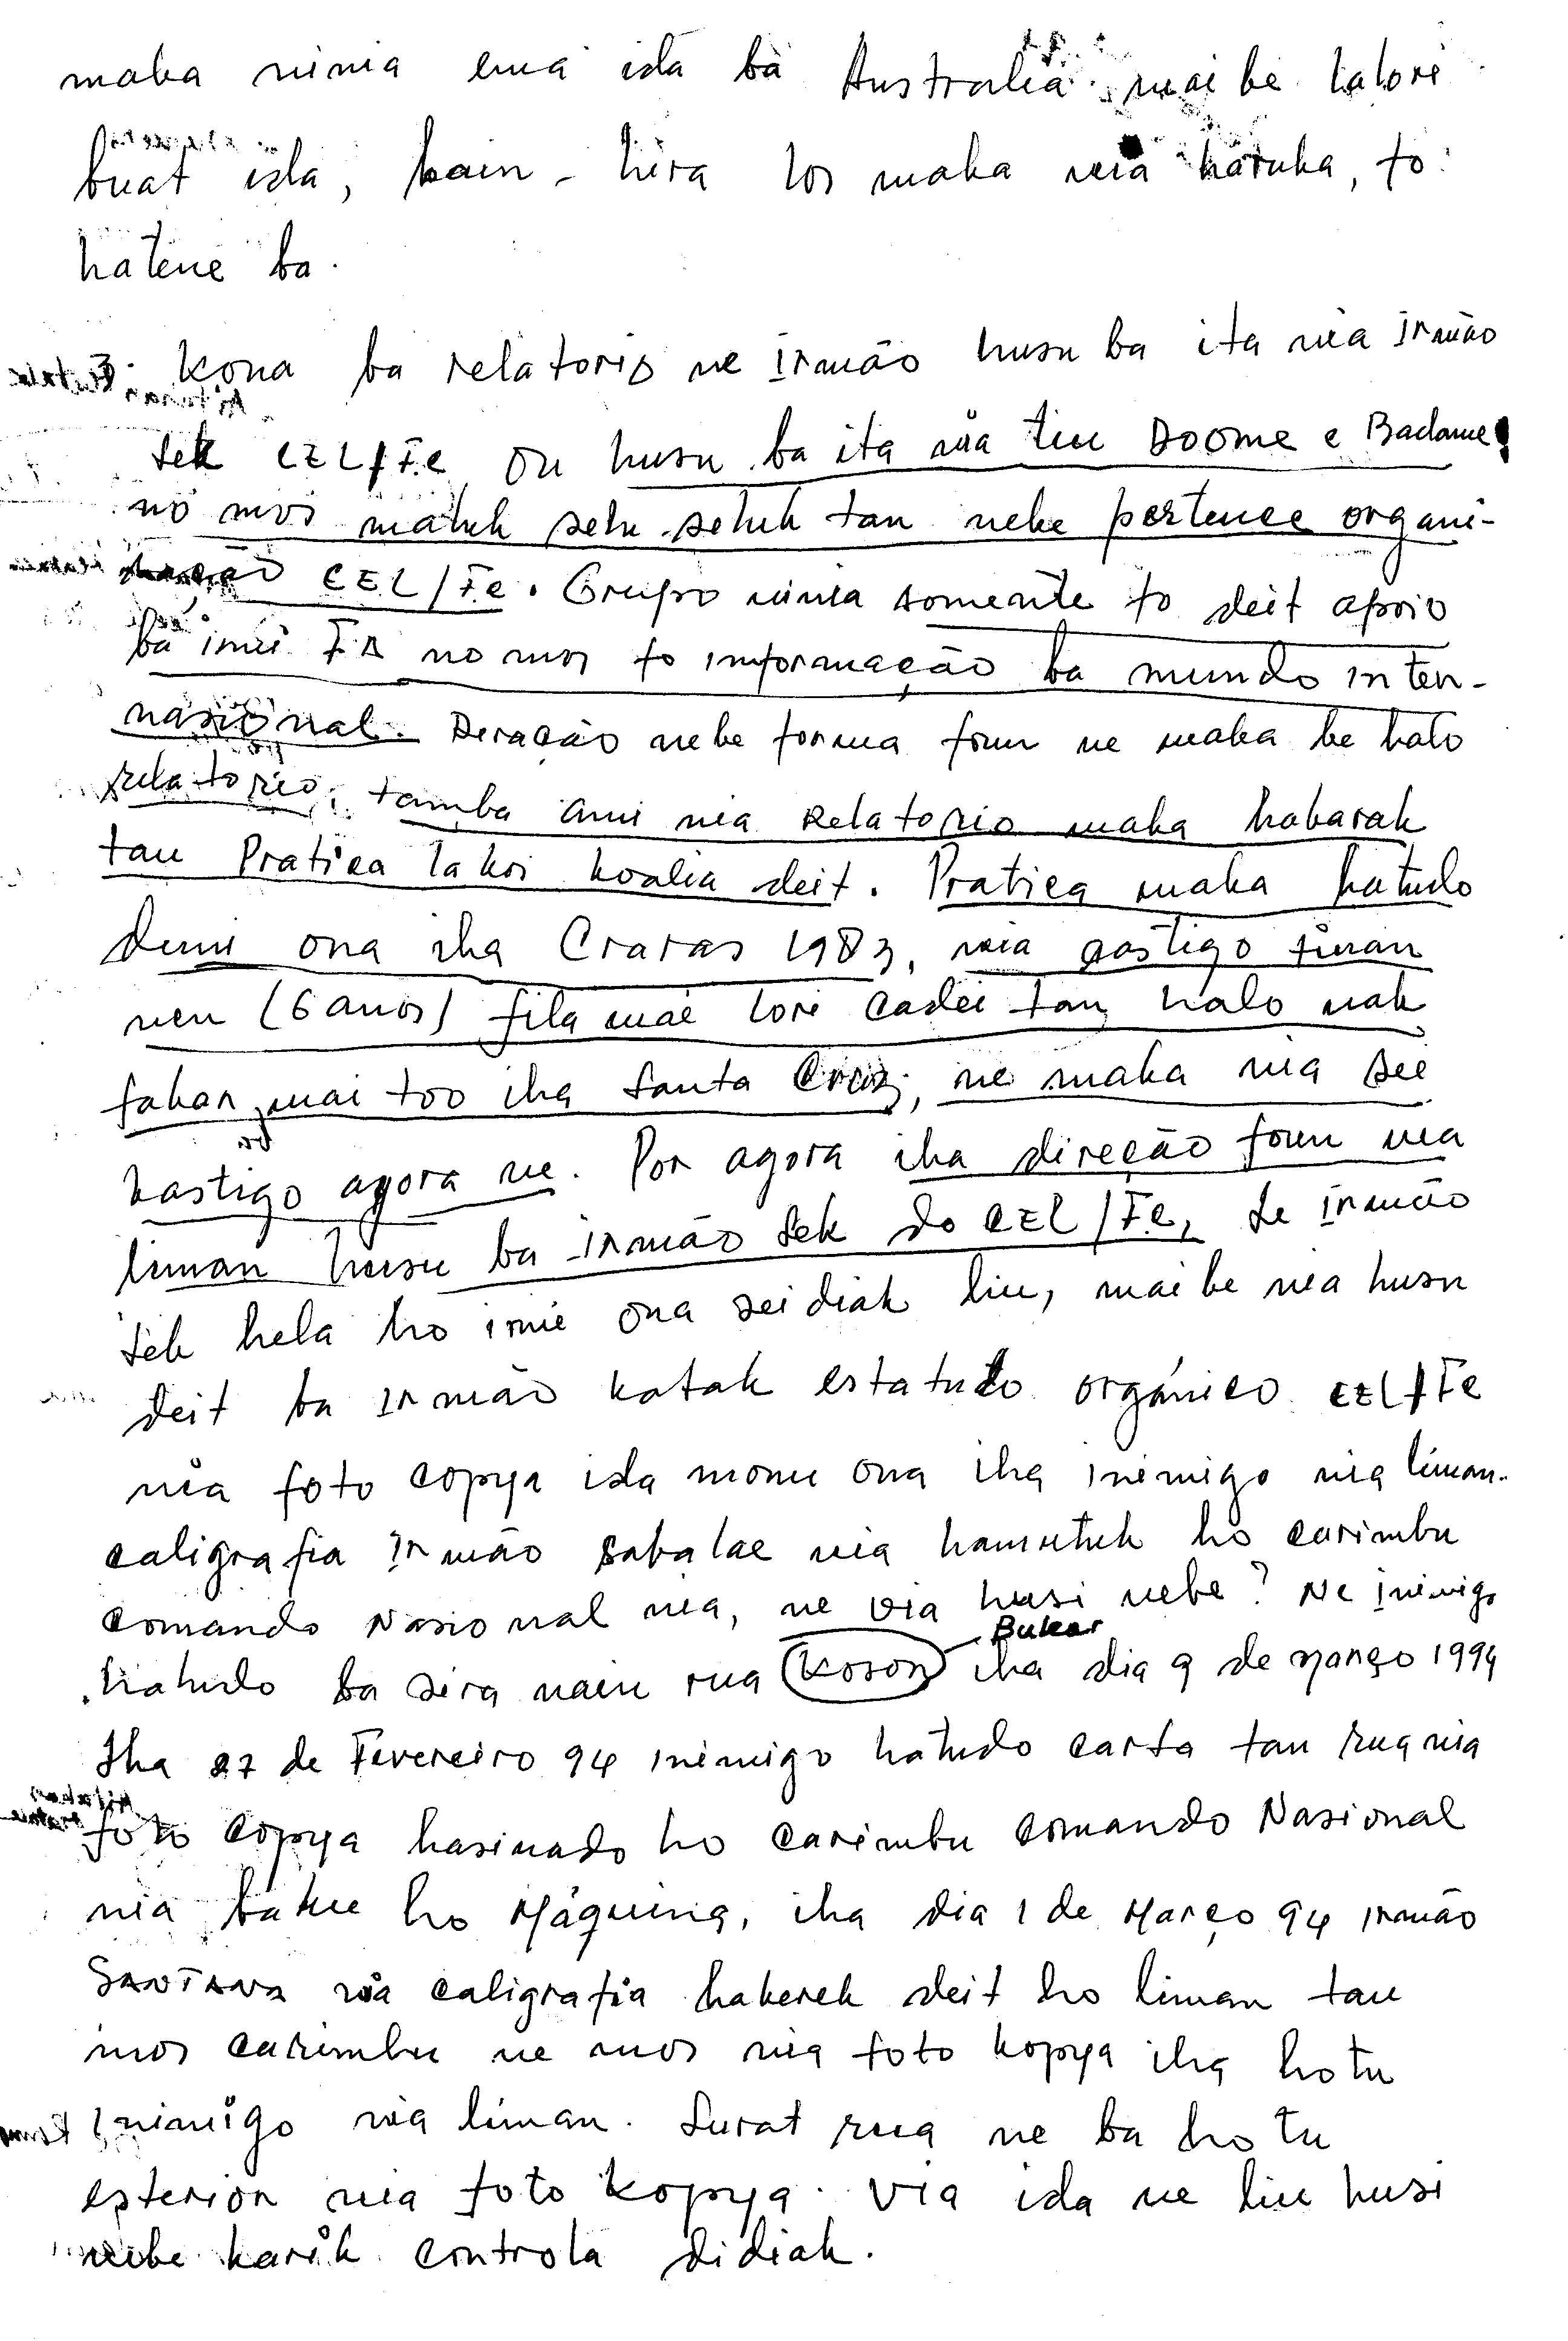 maka ninia ema ida ba Australia maibe lalori
buat ida, hain-hira los maka nia haruka, fo
hatene ba.
3. Kona ba relatorio ne Irmão husu ba ita nia Irmão
Sek CEL/FC ou husu ba ita nia tiu Doome e Badame
no mos maluk selu-seluk tan nebe pertence organi-
CEL/FC. Grupo ninia somente fo deit apoio
ba imi no mos fo informação ba mundo inter-
nasional. Deração nebe forma foun ne maka be halo
relatorio, tamba ami nia Relatorio maka habarak
tau Pratica lakoi koalia deit. Pratica maka hatudo
duni ona iha Craras 1983, nia castigo tinan
nen (6 anos) fila mai lori cadei tan halo nak
fahan mai too iha Santa Cruz, ne maka nia see
kastigo agora ne. Por agora iha direção foun nia
liman husu ba irmão Sek do CEL/FC, se irmão
Sek hela ho imi ona sei diak liu, maibe nia husu
deit ba Irmão katak estatuto orgánico CEL/FC
nia foto copya ida monu ona iha inimigo nia liman.
caligrafia Irmão Sabalae nia hamutuk ho carimbu
Comando Nasional nia, ne via husi nebe? Ne inimigo
Bukar
hatudo ba sira nain rua Koson iha dia 9 de Março 1994
Iha 27 de Fevereiro 94 inimigo hatudo carta tan rua nia
foto copya hasinado ho carimbu comando Nasional
nia baku ho Máquina, iha dia 1 de Março 94 irmão
SANTANA nia caligrafia hakerek deit ho liman tau
mos carimbu ne mos nia foto kopya iha hotu
inimigo nia liman. Surat rua ne ba hotu
esterior nia foto kopya. Via ida ne liu husi
nebe karik controla didiak.